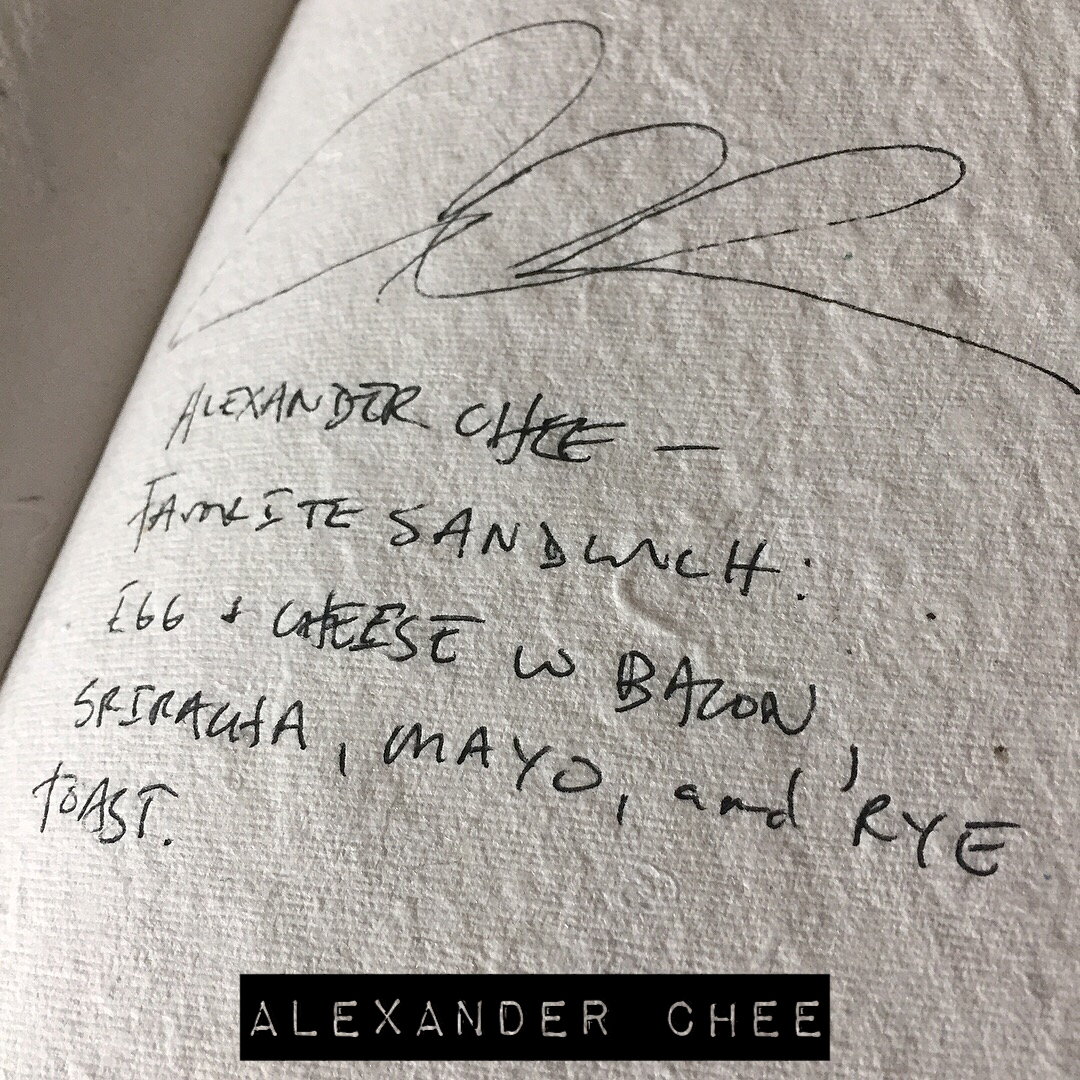 ALEXANDER CHEE —
FAVORITE SANDWICH:
EGG & CHEESE W BACON,
SRIRACHA, MAYO, and RYE
TOAST.
ALEXANDER CHEE